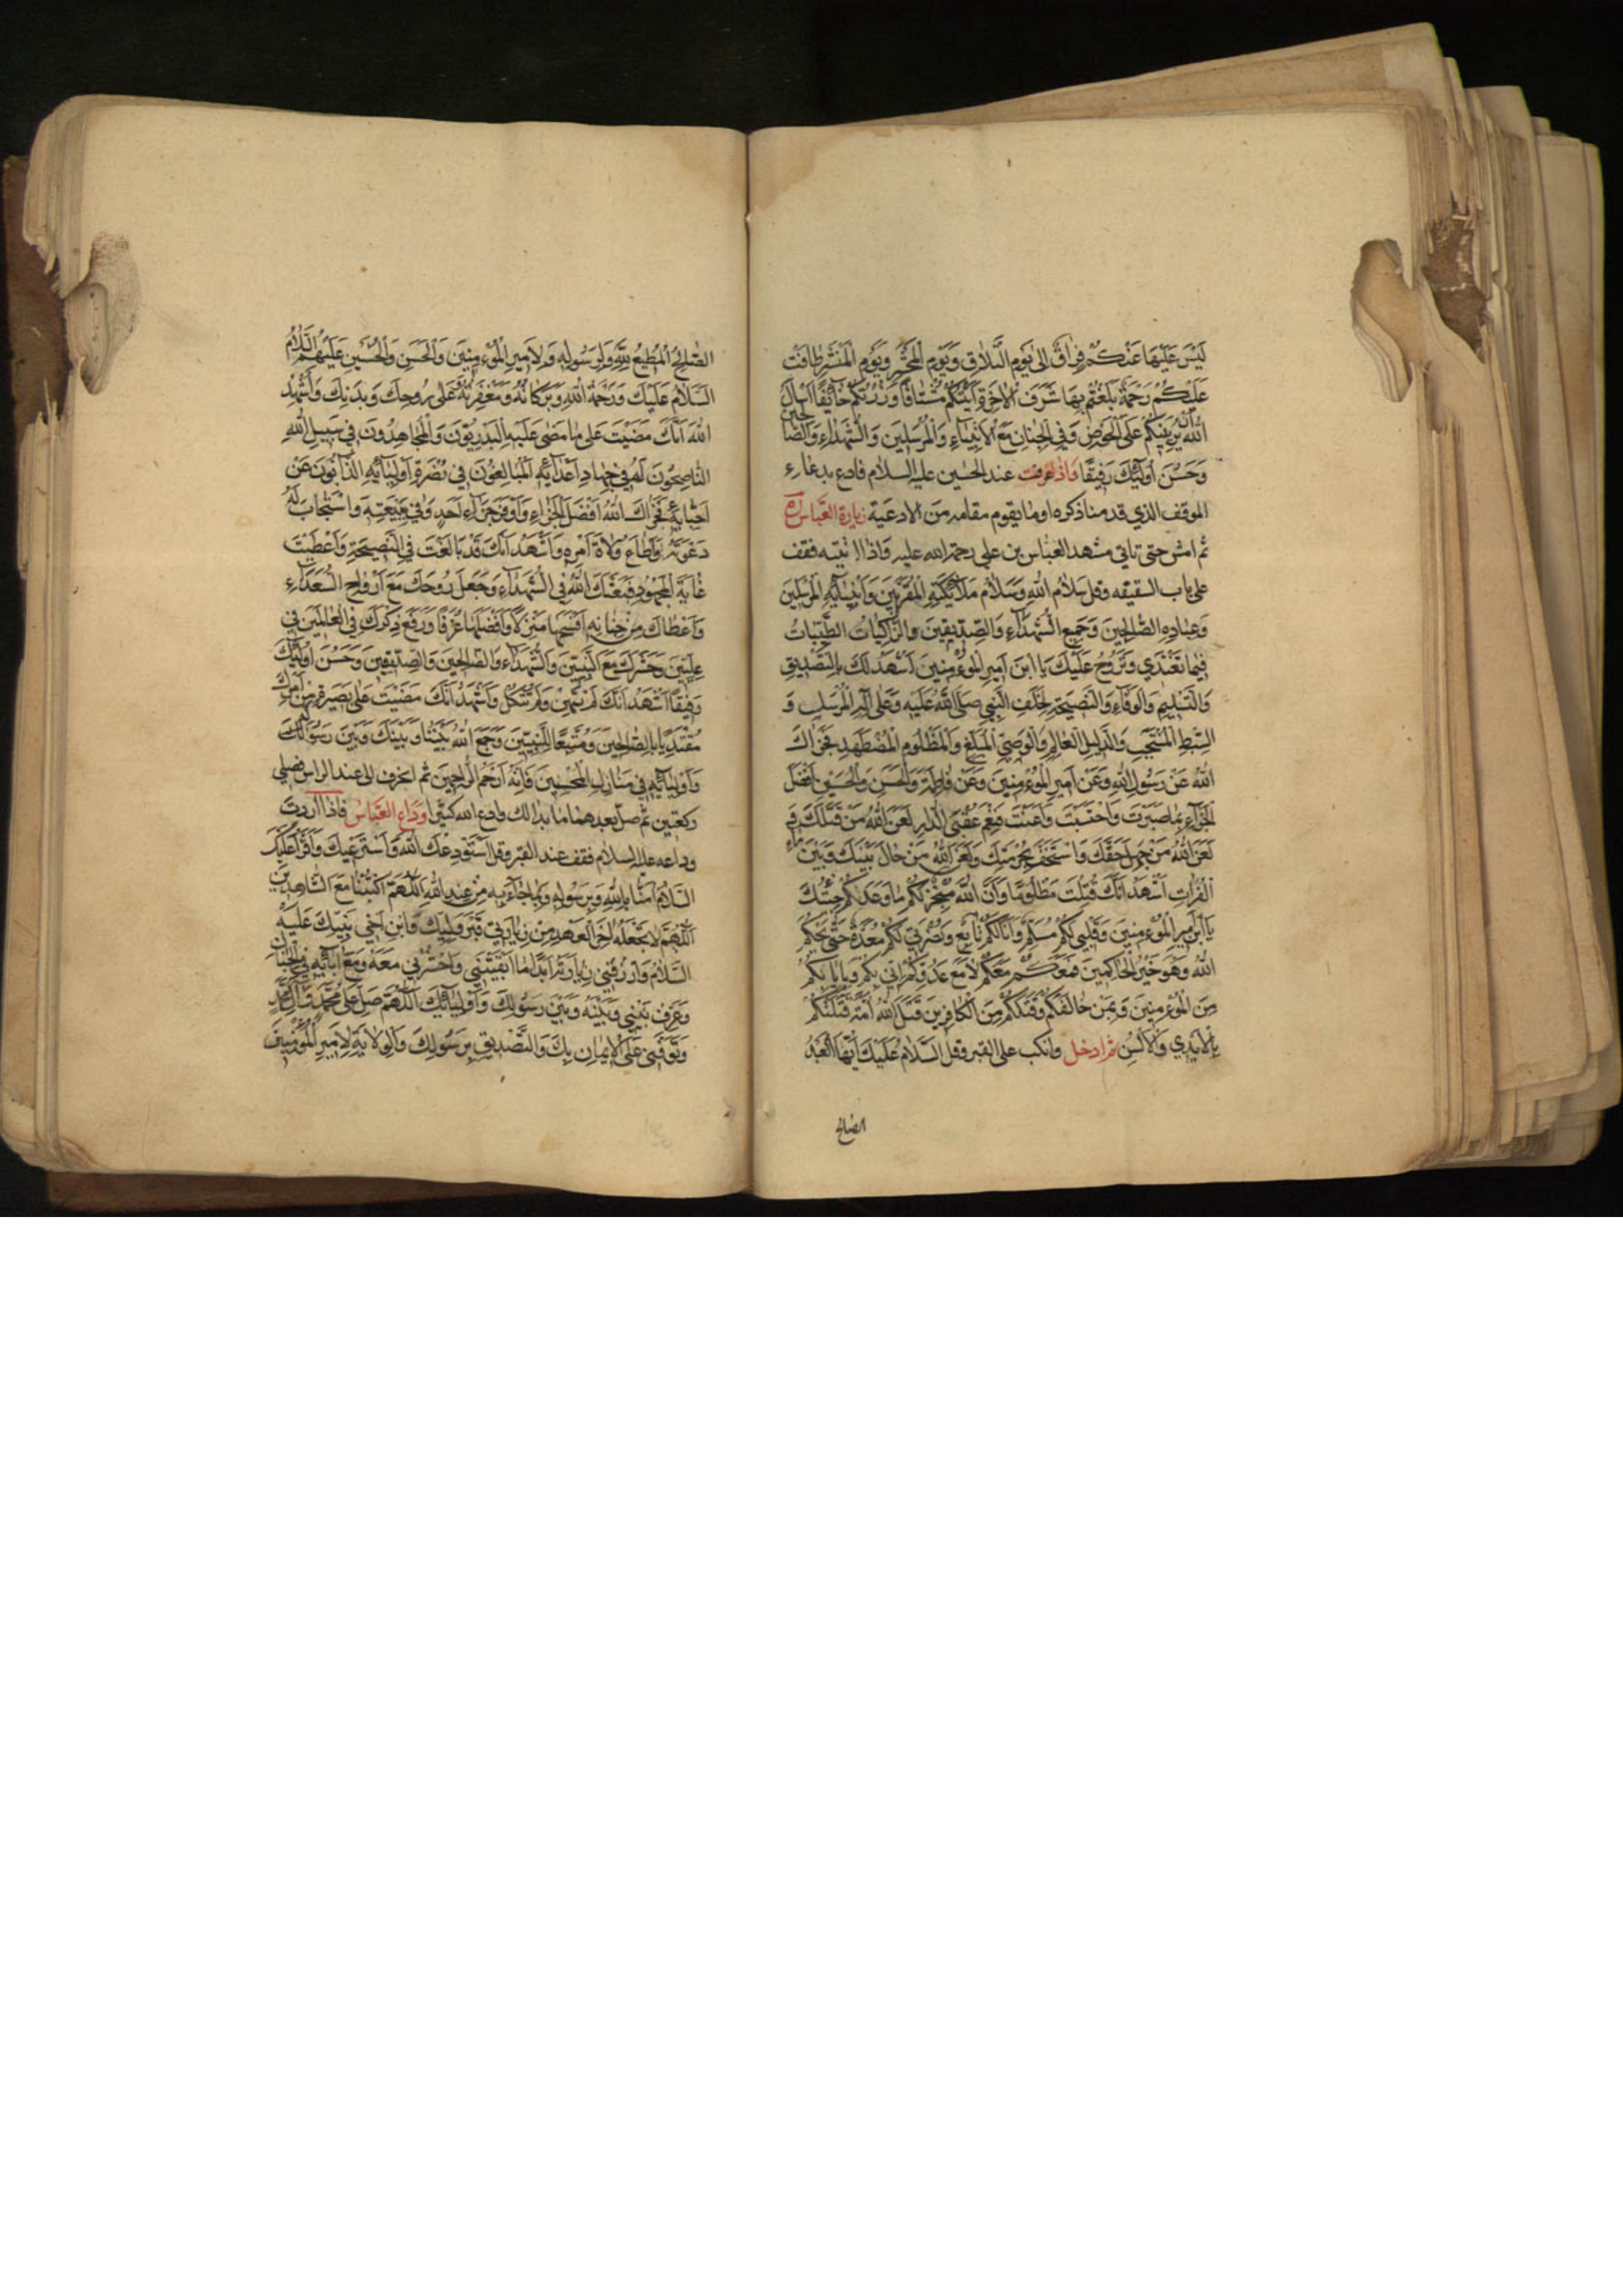 لَيْسَ عَلَيْهَا عَنْكُمْ فِرَاقٌ اِلٰى يَوْمِ التَّلَاقِ وَيَوْمِ الْمَحْشَرِ وَيَوْمِ الْمَنْشَرِ طَافَتْ
عَلَيْكُمْ رَحْمَةٌ بَلَغْتُمْ بِهَا شَرَفَ الْاٰخِرَةِ اَتَيْتُكُمْ مُشْتَاقًا وَزُرْتُكُمْ خَائِفًا اَسْاَلُ
اللّٰهَ اَنْ يُرِيَنِيكُمْ عَلَى الْحَوْضِ وَفِي الْجِنَانِ مَعَ الْاَنْبِيَاءِ وَالْمُرْسَلِينَ وَالشُّهَدَاءِ وَالصَّالِحِينَ
وَحَسُنَ اُولٰئِكَ رَفِيقًا فاذا عرفت عند الحسين عليه السلام فادع بدعاء
الموقف الذي قدمنا ذكره او ما يقوم مقامه من الادعية زيارة العباس ره
ثم امش حتى تاتي مشهد العباس بن علي رحمة الله عليه فاذا اتيته فقف
على باب السقيفه وقل سَلَامُ اللّٰهِ وَسَلَامُ مَلَائِكَتِهِ الْمُقَرَّبِينَ وَاَنْبِيَائِهِ الْمُرْسَلِينَ
وَعِبَادِهِ الصَّالِحِينَ وَجَمِيعِ الشُّهَدَاءِ وَالصِّدِّيقِينَ وَالزَّاكِيَاتِ الطَّيِّبَاتِ
فِيمَا تَغْتَدِي وَتَرُوحُ عَلَيْكَ يَا ابْنَ اَمِيرِ الْمُؤْمِنِينَ اَشْهَدُ لَكَ بِالتَّصْدِيقِ
وَالتَّسْلِيمِ وَالْوَفَاءِ وَالنَّصِيحَةِ لِخَلَفِ النَّبِيِّ صَلَّى اللّٰهُ عَلَيْهِ وَعَلٰى اٰلِهِ الْمُرْسَلِ وَ
السِّبْطِ الْمُنْتَجَبِ وَالدَّلِيلِ الْعَالِمِ وَالْوَصِيِّ الْمُبَلِّغِ وَالْمَظْلُومِ الْمُضْطَهَدِ فَجَزَاكَ
اللّٰهُ عَنْ رَسُولِ اللّٰهِ وَعَنْ اَمِيرِ الْمُؤْمِنِينَ وَعَنْ فَاطِمَةَ وَالْحَسَنِ وَالْحُسَيْنِ اَفْضَلَ
الْجَزَاءِ بِمَا صَبَرْتَ وَاحْتَسَبْتَ وَاَعَنْتَ فَنِعْمَ عُقْبَى الدَّارِ لَعَنَ اللّٰهُ مَنْ قَتَلَكَ وَ
لَعَنَ اللّٰهُ مَنْ جَهِلَ حَقَّكَ وَاسْتَخَفَّ بِحُرْمَتِكَ وَلَعَنَ اللّٰهُ مَنْ حَالَ بَيْنَكَ وَبَيْنَ مَاءِ
الْفُرَاتِ اَشْهَدُ اَنَّكَ قُتِلْتَ مَظْلُومًا وَاَنَّ اللّٰهَ مُنْجِزٌ لَكُمْ مَا وَعَدَكُمْ جِئْتُكَ
يَا ابْنَ اَمِيرِ الْمُؤْمِنِينَ وَقَلْبِي لَكُمْ مُسَلِّمٌ وَاَنَا لَكُمْ تَابِعٌ وَنُصْرَتِي لَكُمْ مُعَدَّةٌ حَتّٰى يَحْكُمَ
اللّٰهُ وَهُوَ خَيْرُ الْحَاكِمِينَ فَمَعَكُمْ مَعَكُمْ لَا مَعَ عَدُوِّكُمْ اِنِّي بِكُمْ وَبِاِيَابِكُمْ
مِنَ الْمُؤْمِنِينَ وَبِمَنْ خَالَفَكُمْ وَقَتَلَكُمْ مِنَ الْكَافِرِينَ قَتَلَ اللّٰهُ اُمَّةً قَتَلَتْكُمْ
بِالْاَيْدِي وَالْاَلْسُنِ ثم ادخل وانكب على القبر وقل اَلسَّلَامُ عَلَيْكَ اَيُّهَا الْعَبْدُ
الصالح
الصَّالِحُ الْمُطِيعُ لِلّٰهِ وَلِرَسُولِهِ وَلِاَمِيرِ الْمُؤْمِنِينَ وَالْحَسَنِ وَالْحُسَيْنِ عَلَيْهِمُ السَّلَامُ
اَلسَّلَامُ عَلَيْكَ وَرَحْمَةُ اللّٰهِ وَبَرَكَاتُهُ وَمَغْفِرَتُهُ عَلٰى رُوحِكَ وَبَدَنِكَ وَاُشْهِدُ
اللّٰهَ اَنَّكَ مَضَيْتَ عَلٰى مَا مَضٰى عَلَيْهِ الْبَدْرِيُّونَ وَالْمُجَاهِدُونَ فِي سَبِيلِ اللّٰهِ
النَّاصِحُونَ لَهُ فِي جِهَادِ اَعْدَائِهِ الْمُبَالِغُونَ فِي نُصْرَةِ اَوْلِيَائِهِ الذَّابُّونَ عَنْ
اَحِبَّائِهِ فَجَزَاكَ اللّٰهُ اَفْضَلَ الْجَزَاءِ وَاَوْفَرَ جَزَاءِ اَحَدٍ وَفٰى بِبَيْعَتِهِ وَاسْتَجَابَ لَهُ
دَعْوَتَهُ وَاَطَاعَ وُلَاةَ اَمْرِهِ وَاَشْهَدُ اَنَّكَ قَدْ بَالَغْتَ فِي النَّصِيحَةِ وَاَعْطَيْتَ
غَايَةَ الْمَجْهُودِ فَبَعَثَكَ اللّٰهُ فِي الشُّهَدَاءِ وَجَعَلَ رُوحَكَ مَعَ اَرْوَاحِ السُّعَدَاءِ
وَاَعْطَاكَ مِنْ جِنَانِهِ اَفْسَحَهَا مَنْزِلًا وَاَفْضَلَهَا غُرَفًا وَرَفَعَ ذِكْرَكَ فِي الْعَالَمِينَ فِي
عِلِّيِّينَ وَحَشَرَكَ مَعَ النَّبِيِّينَ وَالشُّهَدَاءِ وَالصَّالِحِينَ وَالصِّدِّيقِينَ وَحَسُنَ اُولٰئِكَ
رَفِيقًا اَشْهَدُ اَنَّكَ لَمْ تَهِنْ وَلَمْ تَنْكُلْ وَاَشْهَدُ اَنَّكَ مَضَيْتَ عَلٰى بَصِيرَةٍ مِنْ اَمْرِكَ
مُقْتَدِيًا بِالصَّالِحِينَ وَمُتَّبِعًا لِلنَّبِيِّينَ وَجَمَعَ اللّٰهُ بَيْنَنَا وَبَيْنَكَ وَبَيْنَ رَسُولِهِ
وَاَوْلِيَائِهِ فِي مَنَازِلِ الْمُحْسِنِينَ فَاِنَّهُ اَرْحَمُ الرَّاحِمِينَ ثم انحرف الى عند الراس فصلي
ركعتين ثم صل بعدهما ما بدا لك وادع الله كثيرا وداع العباس فاذا اردت
وداعه عليه السلام فقف عند القبر وقل اَسْتَوْدِعُكَ اللّٰهَ وَاَسْتَرْعِيكَ وَاَقْرَأُ عَلَيْكَ
السَّلَامَ اٰمَنَّا بِاللّٰهِ وَبِرَسُولِهِ وَبِمَا جَاءَ بِهِ مِنْ عِنْدِ اللّٰهِ اَللّٰهُمَّ اكْتُبْنَا مَعَ الشَّاهِدِينَ
اَللّٰهُمَّ لَا تَجْعَلْهُ اٰخِرَ الْعَهْدِ مِنْ زِيَارَتِي قَبْرَ وَلِيِّكَ وَابْنِ اَخِي نَبِيِّكَ عَلَيْهِ
السَّلَامُ وَارْزُقْنِي زِيَارَتَهُ اَبَدًا مَا اَبْقَيْتَنِي وَاحْشُرْنِي مَعَهُ وَمَعَ اٰبَائِهِ فِي الْجِنَانِ
وَعَرِّفْ بَيْنِي وَبَيْنَهُ وَبَيْنَ رَسُولِكَ وَاَوْلِيَائِكَ اَللّٰهُمَّ صَلِّ عَلٰى مُحَمَّدٍ وَاٰلِ مُحَمَّدٍ
وَتَوَفَّنِي عَلَى الْاِيمَانِ بِكَ وَالتَّصْدِيقِ بِرَسُولِكَ وَالْوِلَايَةِ لِاَمِيرِ الْمُؤْمِنِينَ